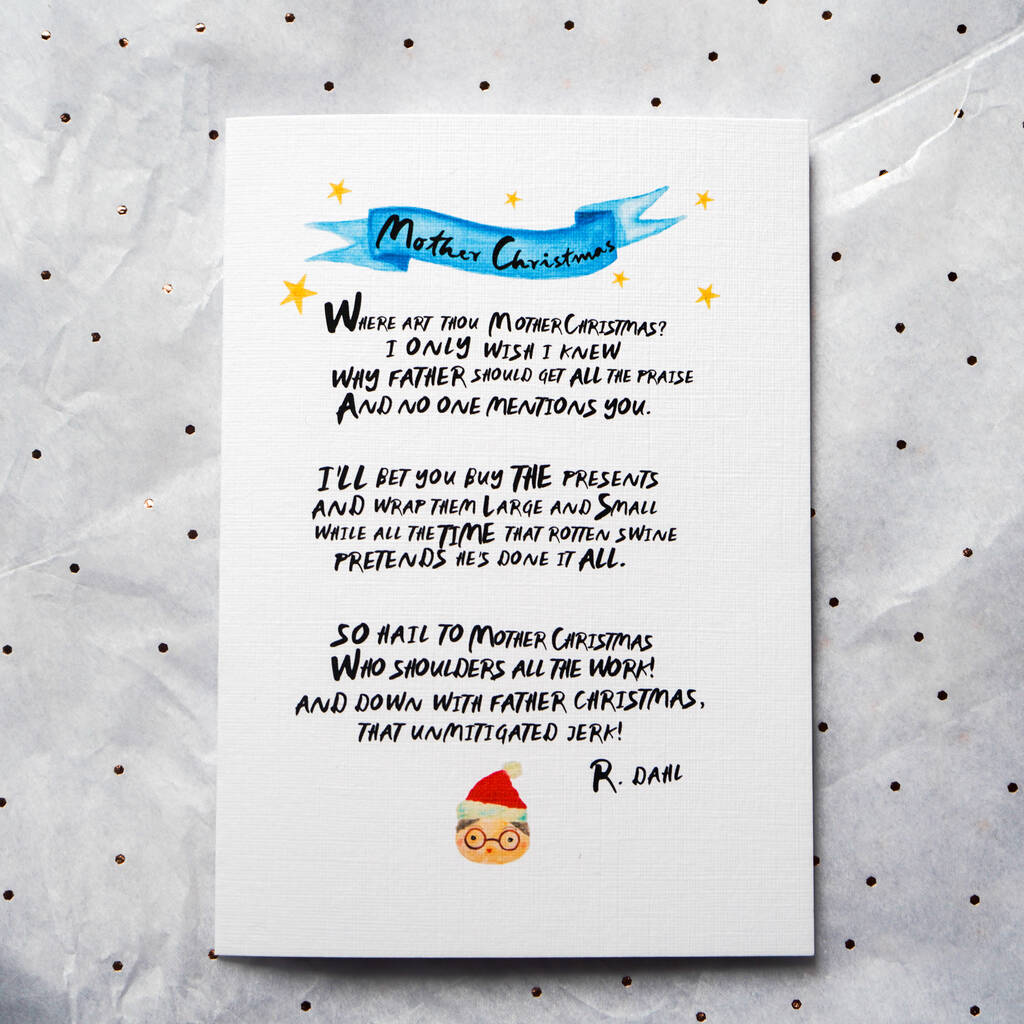 Mother Christmas
Where art thou Mother Christmas?
I ONLY WISH I KNEW
WHY FATHER SHOULD GET ALL THE PRAISE
AND NO ONE MENTIONS YOU.
I'LL BET YOU BUY THE PRESENTS
AND WRAP THEM LARGE AND SMALL
WHILE ALL THE TIME THAT ROTTEN SWINE
PRETENDS HE'S DONE IT ALL.
SO HAIL TO MOTHER CHRISTMAS
WHO SHOULDERS ALL THE WORK!
AND DOWN WITH FATHER CHRISTMAS,
THAT UNMITIGATED JERK!
R. DAHL